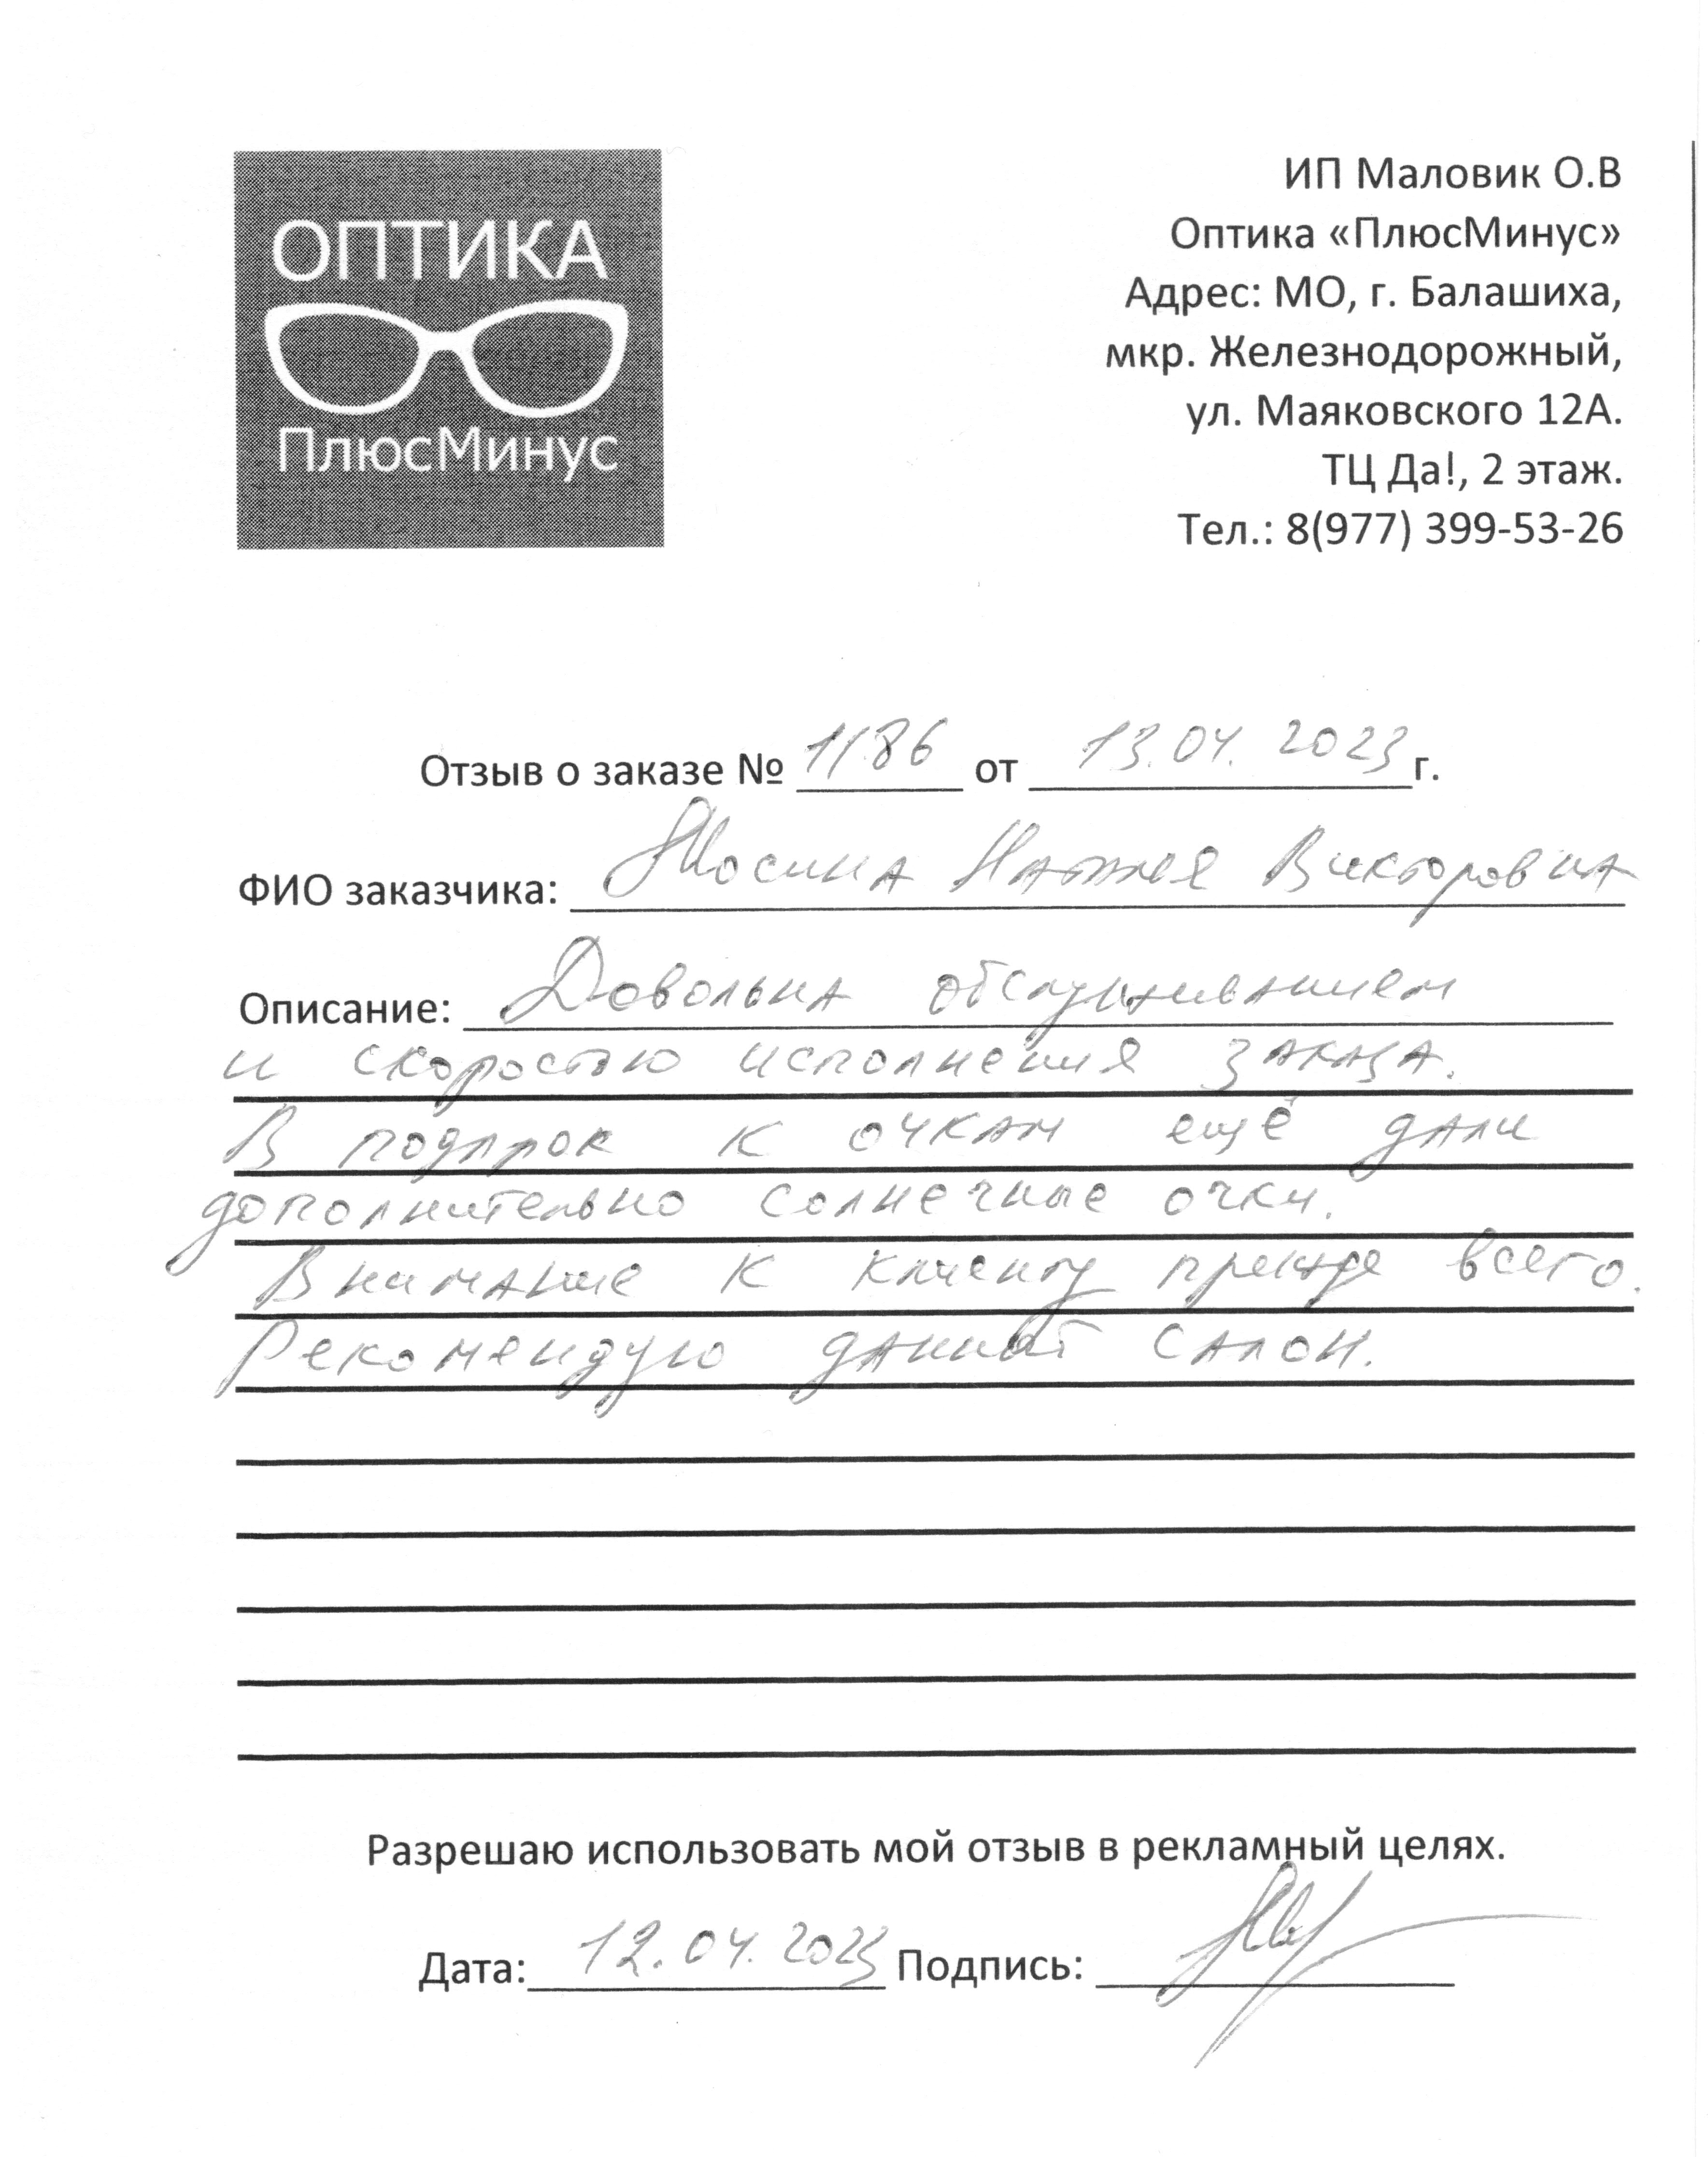 ОПТИКА
ПлюсМинус
ИП Маловик О.В
Оптика «ПлюсМинус»
Адрес: МО, г. Балашиха,
мкр. Железнодорожный,
ул. Маяковского 12А.
ТЦ Да!, 2 этаж.
Тел.: 8(977) 399-53-26
Отзыв о заказе № 1186 от 13.04.2023 г.
ФИО заказчика: Викторовна
Описание: Довольна обслуживанием
и скоростью исполнения заказа.
В подарок к очкам ещё дали
дополнительно солнечные очки.
Внимание к клиенту прежде всего.
Рекомендую данный салон.
Разрешаю использовать мой отзыв в рекламный целях.
Дата: 12.04.2023 Подпись: